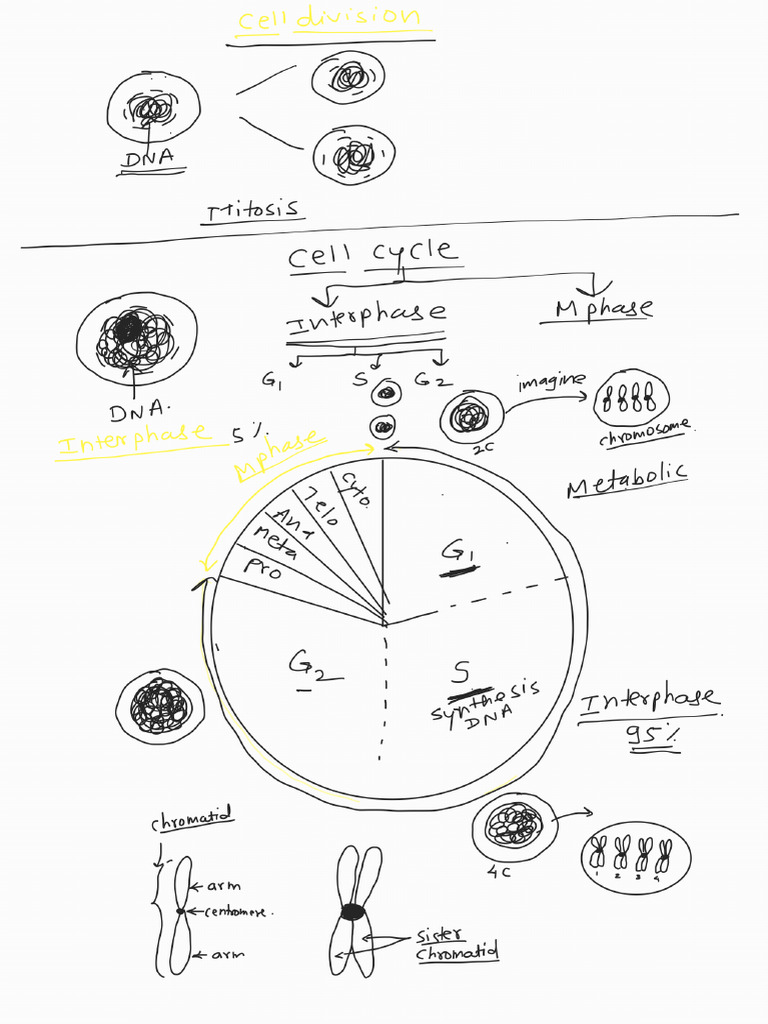 Cell division
DNA
Mitosis
Cell cycle
Interphase
M phase
G1 S G2
DNA.
Interphase 5%
M phase
2C
imagine
chromosome
Metabolic
Cyto.
Telo
Ana
meta
pro
G1
G2
S
synthesis
DNA
Interphase
95%
4C
1 2 3 4
chromatid
arm
centromere.
arm
sister
chromatid